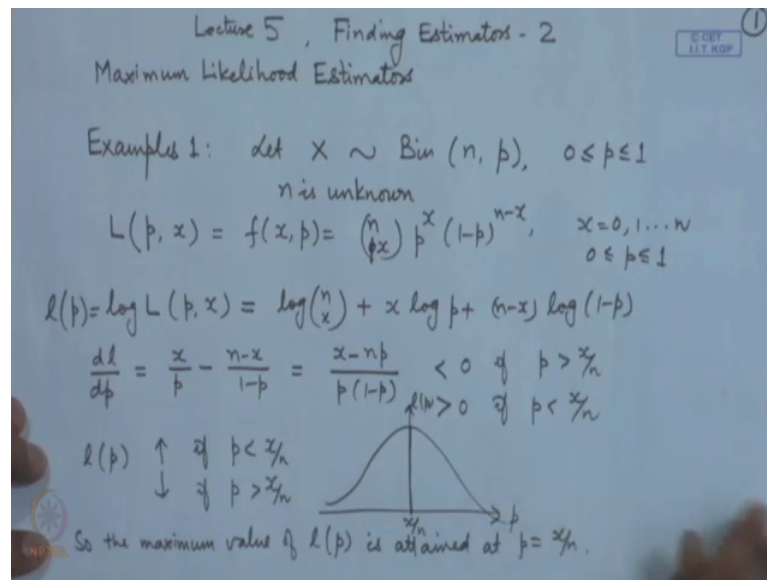 Lecture 5, Finding Estimators - 2
①
© CET
I.I.T. KGP
Maximum Likelihood Estimators
Examples 1: Let X ~ Bin (n, p), 0 ≤ p ≤ 1
n is unknown
L(p, x) = f(x, p) = (n x) p^x (1-p)^{n-x}, x = 0, 1 ... n
0 ≤ p ≤ 1
l(p) = log L(p, x) = log (n x) + x log p + (n-x) log (1-p)
dl/dp = x/p - (n-x)/(1-p) = (x-np)/(p(1-p)) < 0 if p > x/n
> 0 if p < x/n
l(p)
l(p) ↑ if p < x/n
↓ if p > x/n
x/n p
So the maximum value of l(p) is attained at p = x/n.
NPTEL